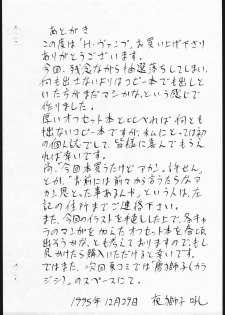 あとがき
この度は「H・ヴァンプ」お買い上げ下さり
ありがとうございます。
今回、残念ながら抽選落ちしてしまい、
何も出さないよりはコピー本でも出しと
いた方がまだマシかな、という感じで
作りました。
厚いオフセット本と比べれば何とも
拙ないコピー本ですが、私にとっては初
の個人誌でして、皆様に喜んでもらえ
れば幸いです。
尚、「今回本買うたけどアカン。許せん」
とか、「お前には前々から言うたろ
思とった事あんねん」という人は、左
記の住所までご連絡下さい。
また、今回のイラストを使し、各キャラ
のマンガを加えたオフセット本を春に
出そうかな、とも考えておりますので、もし
見かけたら購入いただけると幸いです。
ではまた、次回東コミでは「唐獅子(カラ
ジシ)」のスペースにて。
1995年12月29日 夜獅子 吼